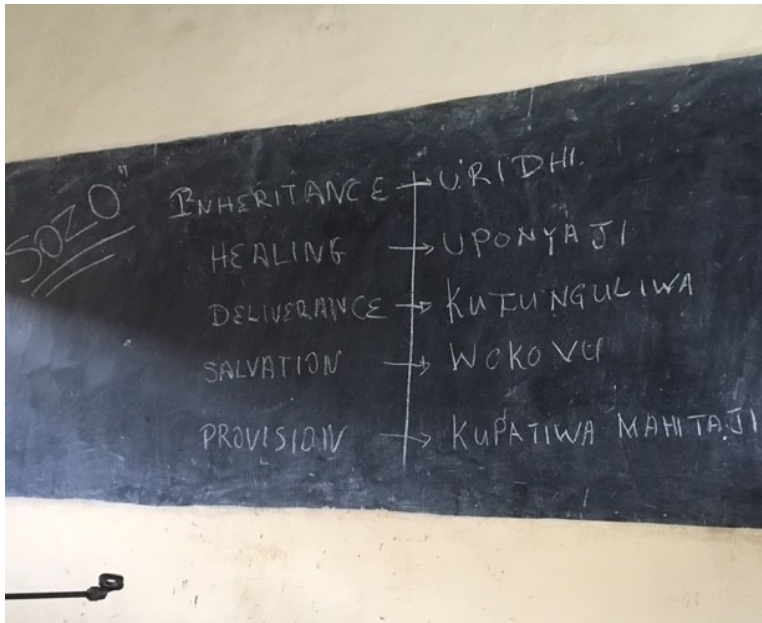 SOZO"
INHERITANCE → URIDHI.
HEALING → UPONYAJI
DELIVERANCE → KUFUNGULIWA
SALVATION → WOKOVU
PROVISION → KUPATIWA MAHITAJI